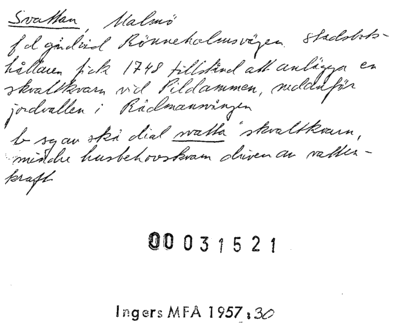 Svattan, Malmö
f d gård vid Rönneholmsvägen. Stadsbots-
hållaren fick 1748 tillstånd att anlägga en
skvaltkvarn vid Pildammen, nedanför
jordvallen i Rådmansvången
b sg av skå dial. watta "skvaltkvarn,
mindre husbehovskvarn driven av vatten-
kraft
00031521
Ingers MFÅ 1957:30